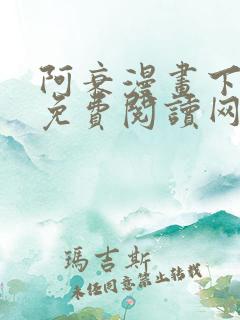 阿衰漫畫下
免費閱讀网
瑪吉斯
未經同意禁止轉載